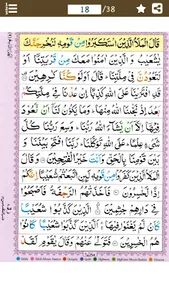 18 /38
قَالَ الْمَلَاُ الَّذِيْنَ اسْتَكْبَرُوْا مِنْ قَوْمِهٖ لَنُخْرِجَنَّكَ
يٰشُعَيْبُ وَالَّذِيْنَ اٰمَنُوْا مَعَكَ مِنْ قَرْيَتِنَاۤ اَوْ
لَتَعُوْدُنَّ فِيْ مِلَّتِنَا ؕ قَالَ اَوَلَوْ كُنَّا كٰرِهِيْنَ قَدِ
افْتَرَيْنَا عَلَى اللّٰهِ كَذِبًا اِنْ عُدْنَا فِيْ مِلَّتِكُمْ
بَعْدَ اِذْ نَجّٰىنَا اللّٰهُ مِنْهَا ؕ وَمَا يَكُوْنُ لَنَاۤ اَنْ نَّعُوْدَ
فِيْهَاۤ اِلَّاۤ اَنْ يَّشَآءَ اللّٰهُ رَبُّنَا ؕ وَسِعَ رَبُّنَا كُلَّ
شَيْءٍ عِلْمًا ؕ عَلَى اللّٰهِ تَوَكَّلْنَا ؕ رَبَّنَا افْتَحْ بَيْنَنَا
وَبَيْنَ قَوْمِنَا بِالْحَقِّ وَاَنْتَ خَيْرُ الْفٰتِحِيْنَ وَقَالَ
الْمَلَاُ الَّذِيْنَ كَفَرُوْا مِنْ قَوْمِهٖ لَئِنِ اتَّبَعْتُمْ شُعَيْبًا
اِنَّكُمْ اِذًا لَّخٰسِرُوْنَ فَاَخَذَتْهُمُ الرَّجْفَةُ فَاَصْبَحُوْا
فِيْ دَارِهِمْ جٰثِمِيْنَ الَّذِيْنَ كَذَّبُوْا شُعَيْبًا
كَاَنْ لَّمْ يَغْنَوْا فِيْهَا ۛۚ اَلَّذِيْنَ كَذَّبُوْا شُعَيْبًا
كَانُوْا هُمُ الْخٰسِرِيْنَ فَتَوَلّٰى عَنْهُمْ وَقَالَ يٰقَوْمِ لَقَدْ